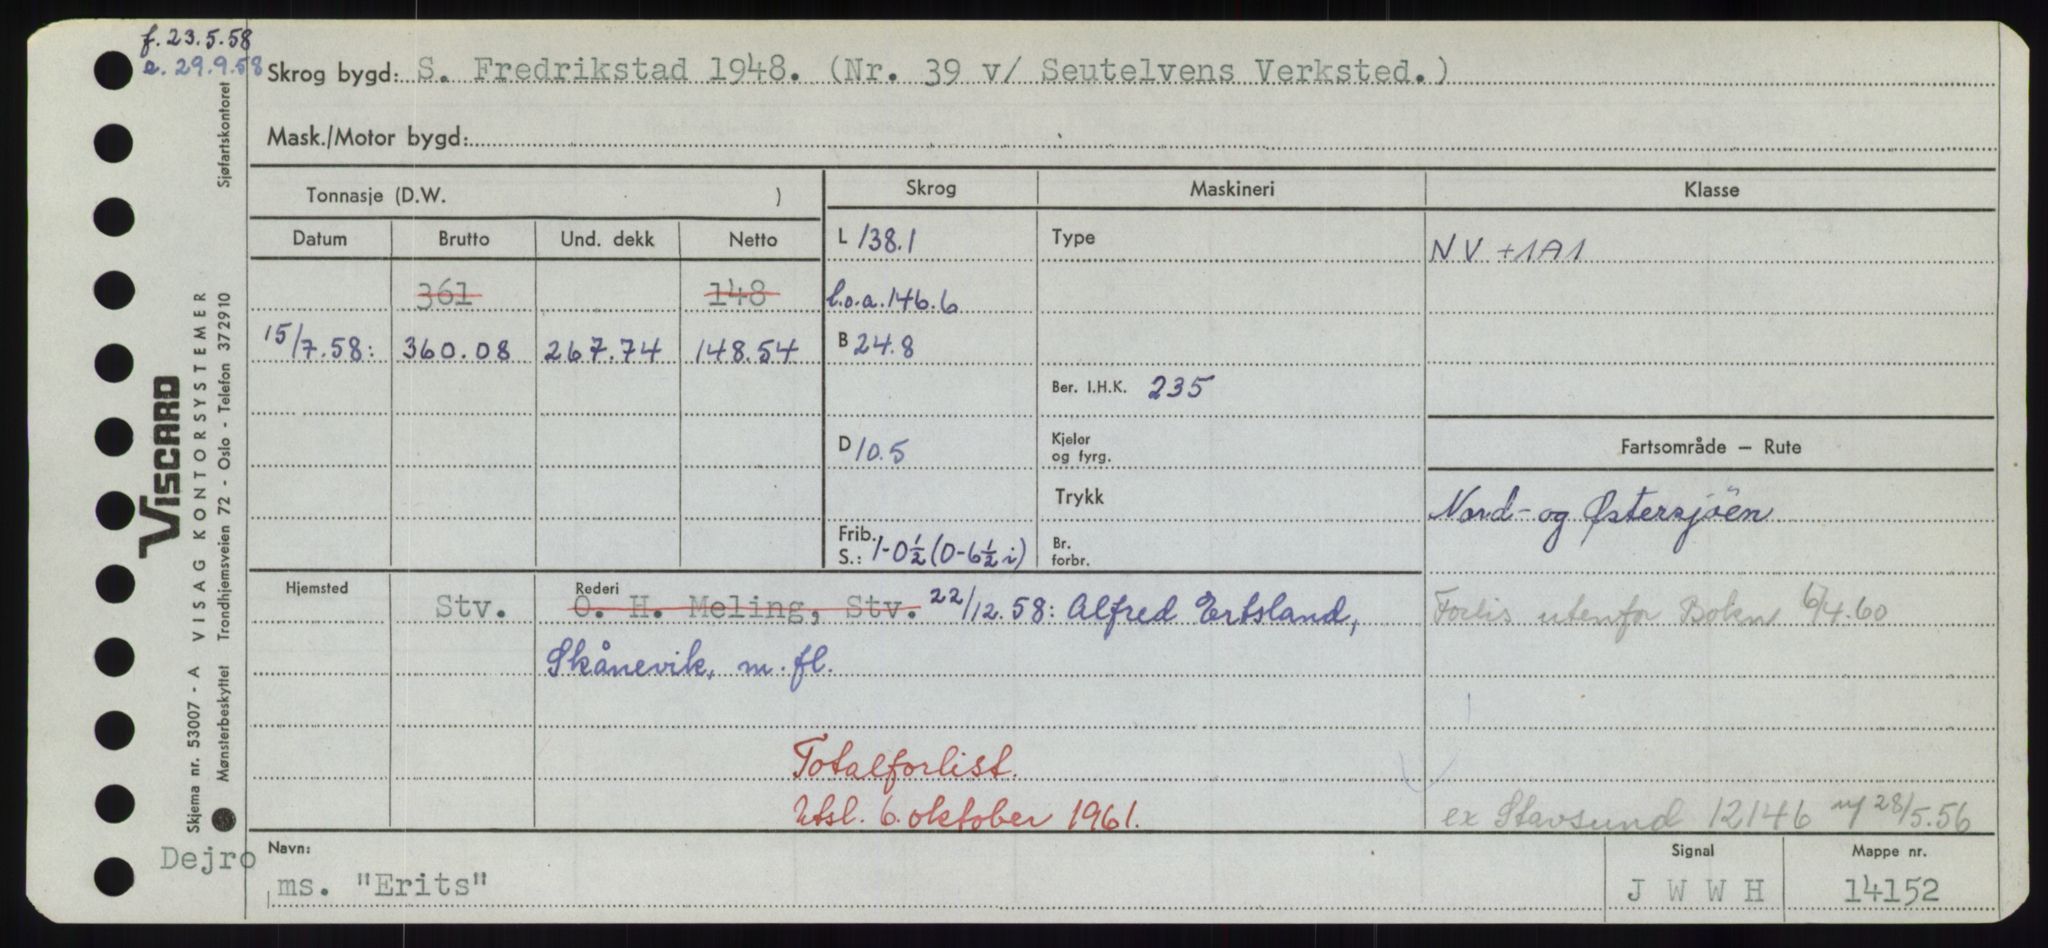 f. 23.5.58
a. 29.9.58
Skrog bygd: S. Fredrikstad 1948. (Nr. 39 v/ Seutelvens Verksted.)
Mask./Motor bygd:
Tonnasje (D.W. )
Skrog
Maskineri
Klasse
Datum
Brutto
Und. dekk
Netto
L 138.1
Type
NV +1A1
361
148
l.o.a. 146.6
15/7.58:
360.08
267.74
148.54
B 24.8
Ber. I.H.K. 235
D 10.5
Kjeler
og fyrg.
Fartsområde — Rute
Trykk
Nord- og Østersjöen
Frib.
S.: 1-0½ (0-6½ i)
Br.
forbr.
Hjemsted
Stv.
Rederi
O. H. Meling, Stv. 22/12.58: Alfred Ertsland,
Skånevik, m. fl.
Forlis utenfor Bokn 6/4.60
Totalforlist.
Utsl. 6. oktober 1961.
ex Stavsund 12146 28/5.56
Dejro
Navn:
ms. "Erits"
Signal
J W W H
Mappe nr.
14152
Sjøfartskontoret
VISCARD
Skjema nr. 53007 - A VISAG KONTORSYSTEMER
Mønsterbeskyttet Trondhjemsveien 72 - Oslo - Telefon 372910